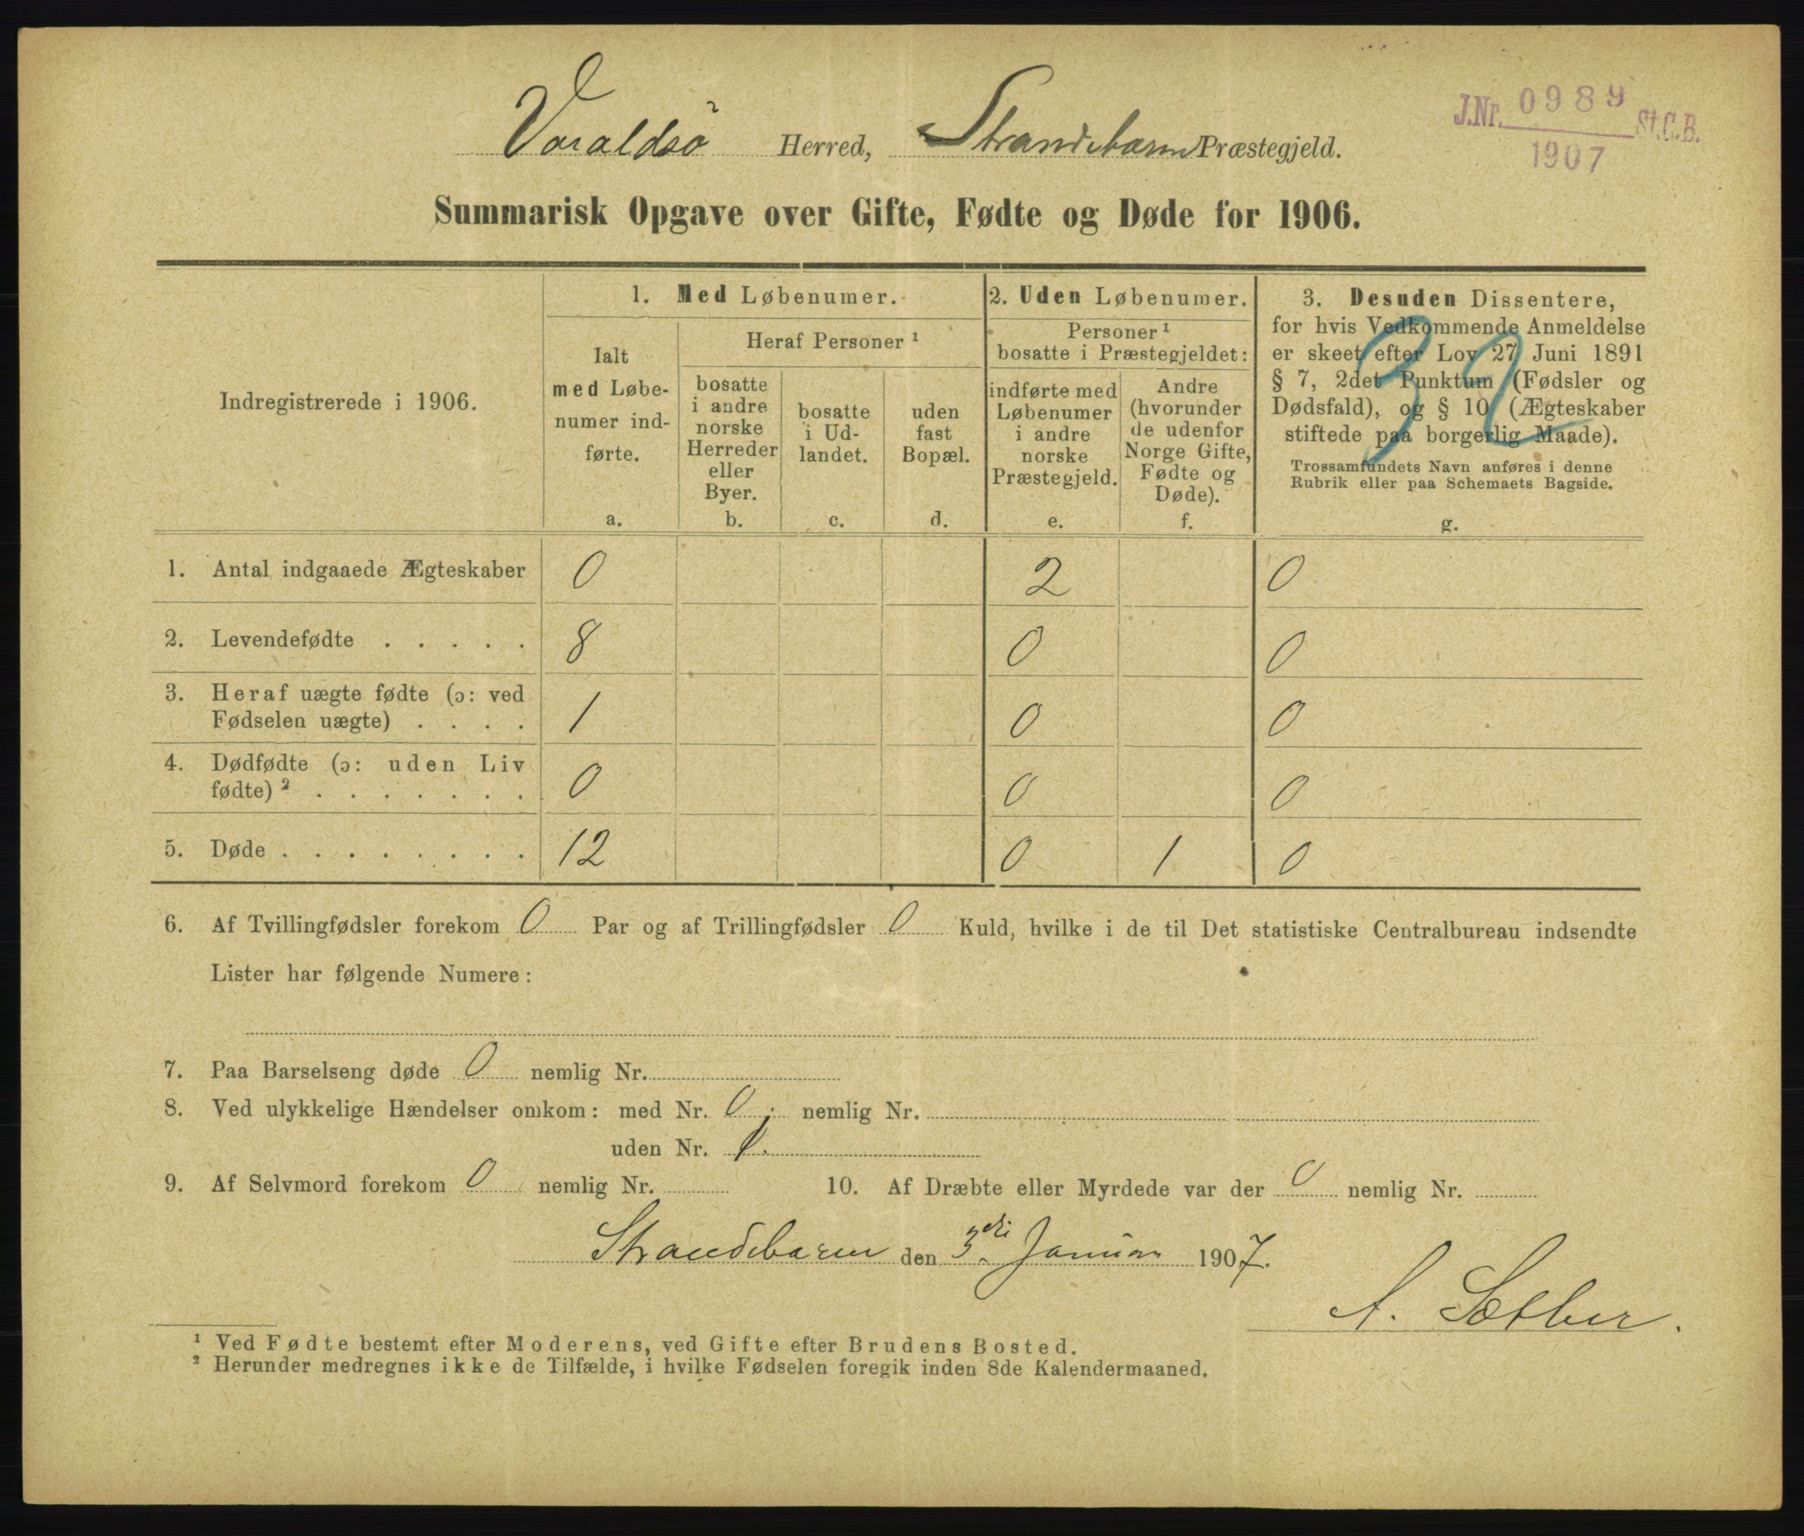 Varaldsö Herred, Strandebarm Præstegjeld.
J.Nr. 0989 St.C.B.
1907
Summarisk Opgave over Gifte, Fødte og Døde for 1906.
Indregistrerede i 1906.
1. Med Løbenumer.
Ialt
med Løbe-
numer ind-
førte.
a.
Heraf Personer ¹
bosatte
i andre
norske
Herreder
eller
Byer.
b.
bosatte
i Ud-
landet.
c.
uden
fast
Bopæl.
d.
2. Uden Løbenumer.
Personer ¹
bosatte i Præstegjeldet:
indførte med
Løbenumer
i andre
norske
Præstegjeld.
e.
Andre
(hvorunder
de udenfor
Norge Gifte,
Fødte og
Døde).
f.
3. Desuden Dissentere,
for hvis Vedkommende Anmeldelse
er skeet efter Lov 27 Juni 1891
§ 7, 2det Punktum (Fødsler og
Dødsfald), og § 10 (Ægteskaber
stiftede paa borgerlig Maade).
Trossamfundets Navn anføres i denne
Rubrik eller paa Schemaets Bagside.
g.
32
1. Antal indgaaede Ægteskaber 0 2 0
2. Levendefødte . . . . . 8 0 0
3. Heraf uægte fødte (ɔ: ved
Fødselen uægte) . . . . 1 0 0
4. Dødfødte (ɔ: uden Liv
fødte) ² . . . . . . . 0 0 0
5. Døde . . . . . . . . 12 0 1 0
6. Af Tvillingfødsler forekom 0 Par og af Trillingfødsler 0 Kuld, hvilke i de til Det statistiske Centralbureau indsendte
Lister har følgende Numere:
7. Paa Barselseng døde 0 nemlig Nr.
8. Ved ulykkelige Hændelser omkom: med Nr. 0. nemlig Nr.
uden Nr. 1.
9. Af Selvmord forekom 0 nemlig Nr.
10. Af Dræbte eller Myrdede var der 0 nemlig Nr.
Strandebarm den 3die Januar 1907.
A. Sæther.
¹ Ved Fødte bestemt efter Moderens, ved Gifte efter Brudens Bosted.
² Herunder medregnes ikke de Tilfælde, i hvilke Fødselen foregik inden 8de Kalendermaaned.